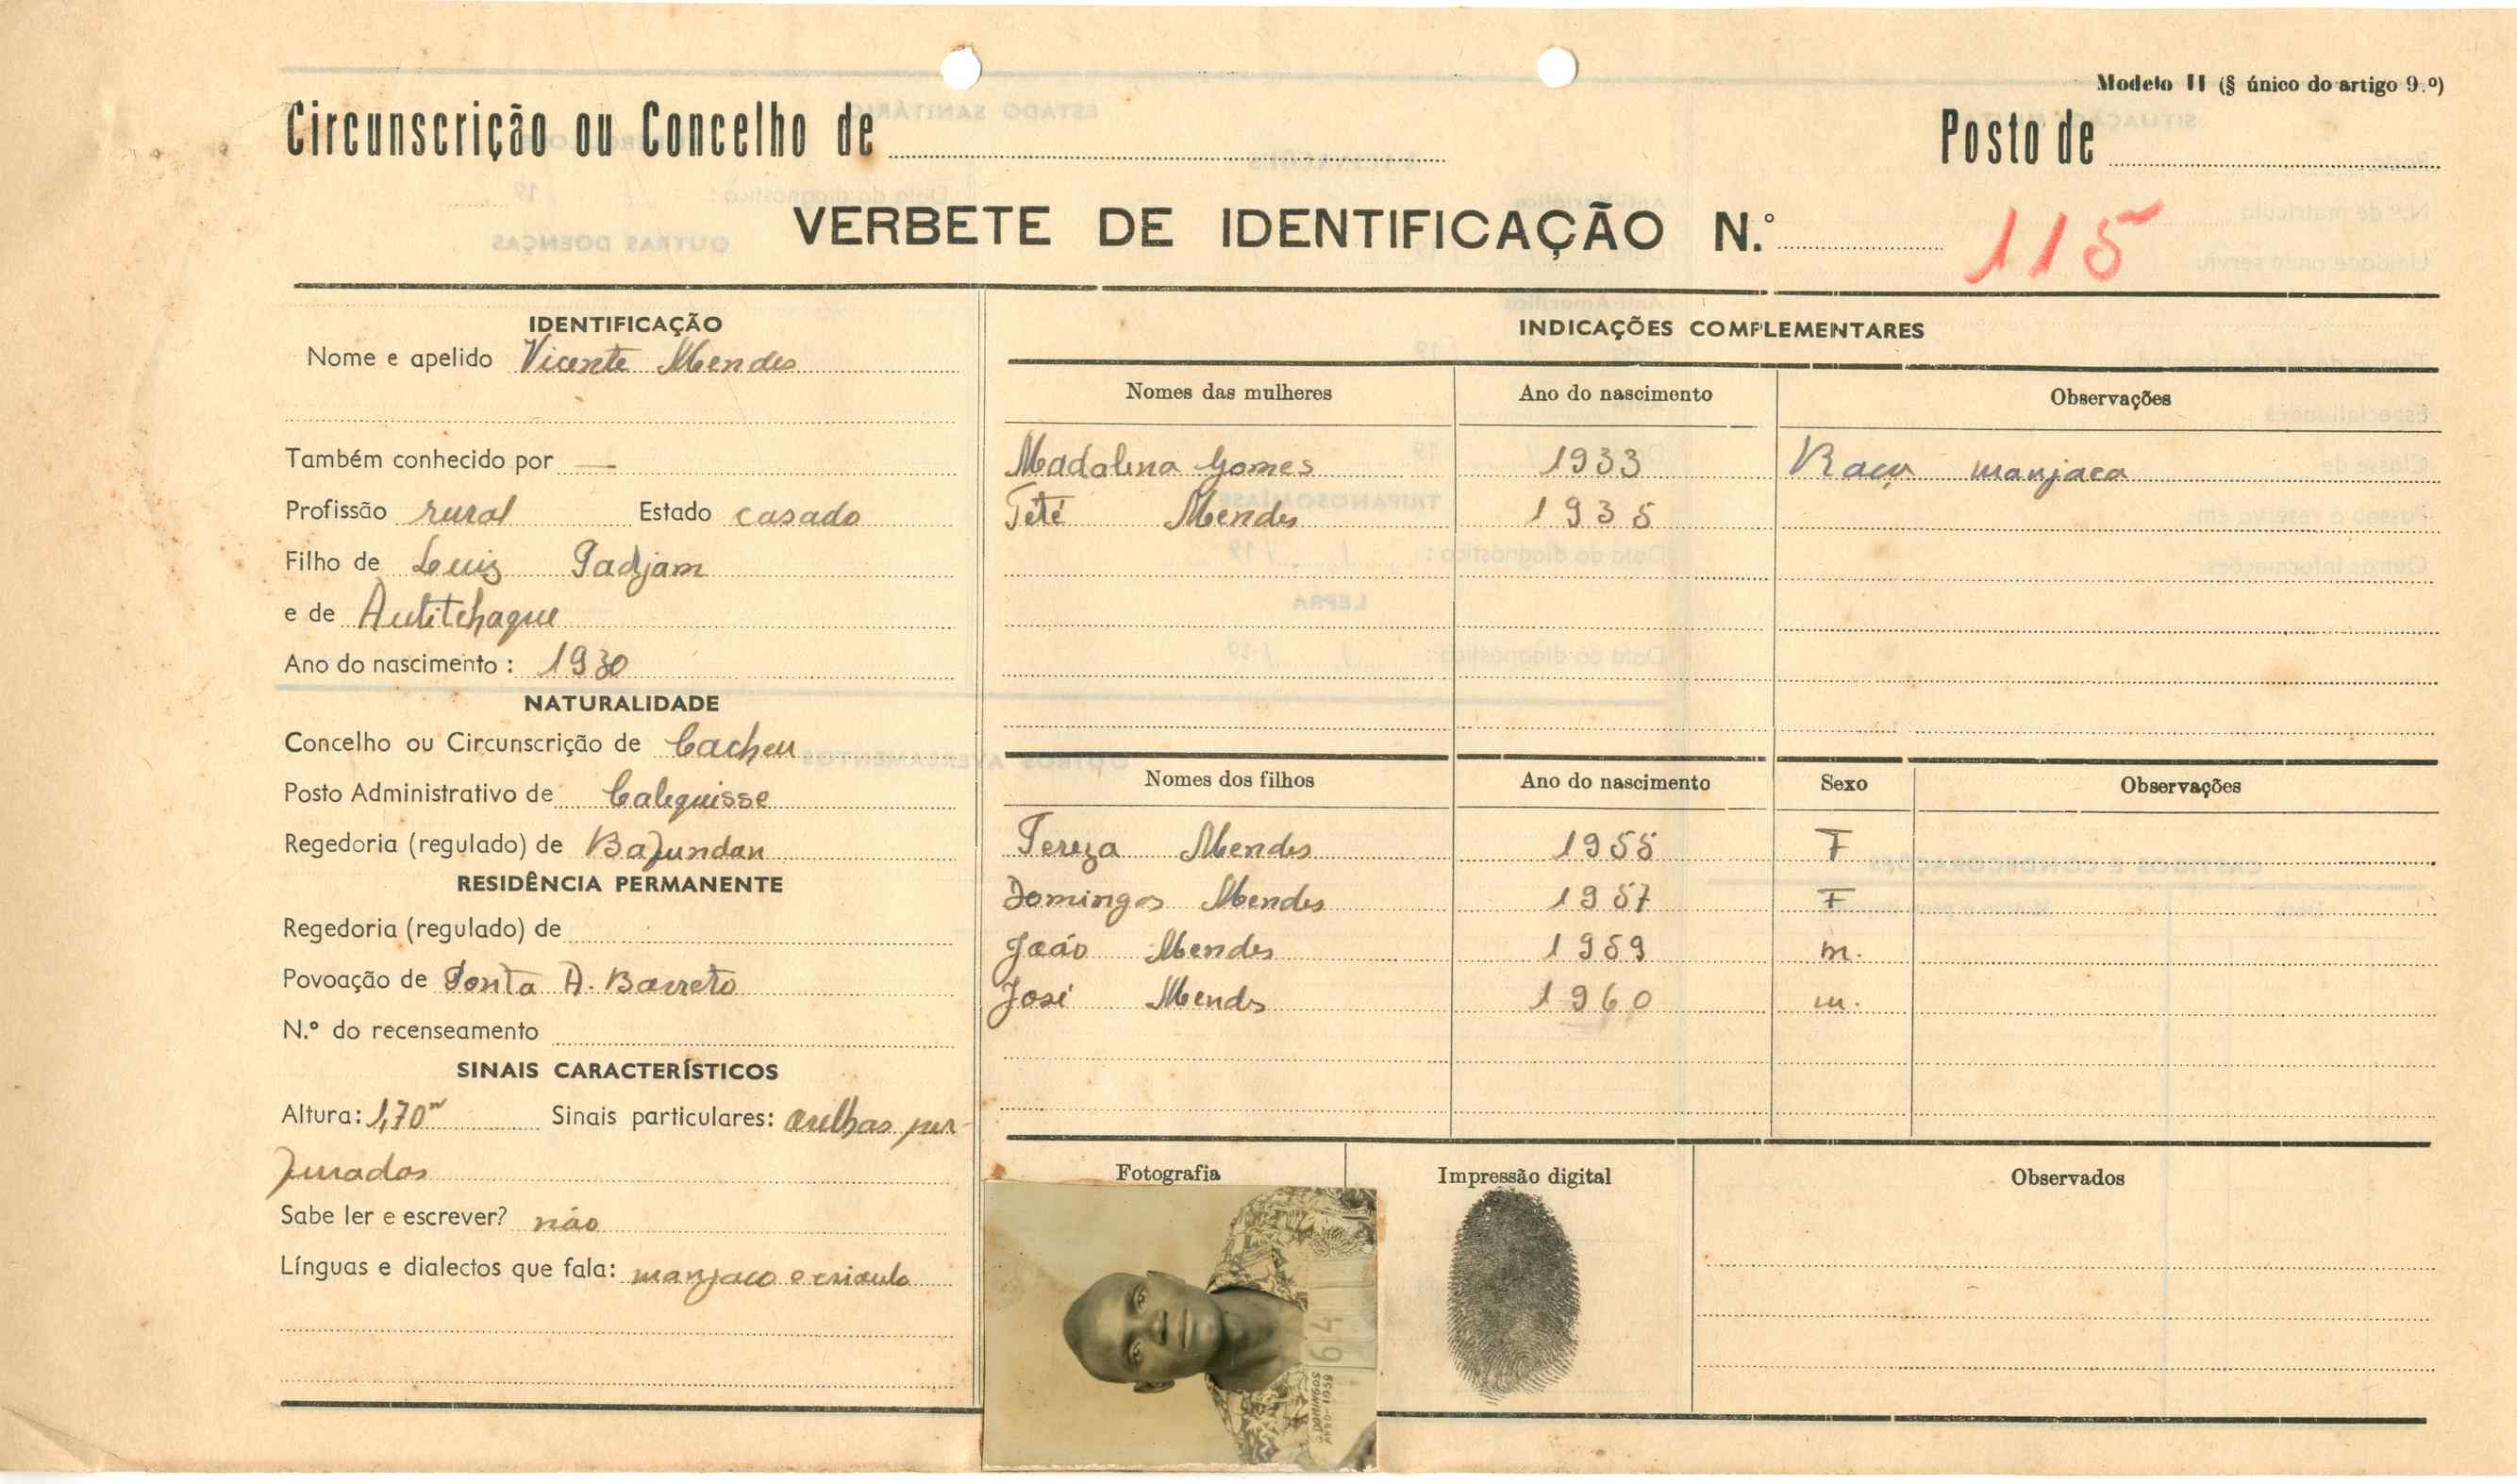 Modelo II (§ único do artigo 9.º)
Circunscrição ou Concelho de
Posto de
VERBETE DE IDENTIFICAÇÃO N.º 115
IDENTIFICAÇÃO
Nome e apelido Vicente Mendes
Também conhecido por —
Profissão rural Estado casado
Filho de Luis Padjam
e de Autitchaque
Ano do nascimento: 1930
NATURALIDADE
Concelho ou Circunscrição de Cacheu
Posto Administrativo de Calequisse
Regedoria (regulado) de Bajundan
RESIDÊNCIA PERMANENTE
Regedoria (regulado) de
Povoação de Ponta A. Barreto
N.º do recenseamento
SINAIS CARACTERÍSTICOS
Altura: 1,70m Sinais particulares: orelhas per-
furados
Sabe ler e escrever? não
Línguas e dialectos que fala: manjaco e crioulo
INDICAÇÕES COMPLEMENTARES
Nomes das mulheres Ano do nascimento Observações
Madalena Gomes 1933 Raça manjaca
Teté Mendes 1935
Nomes dos filhos Ano do nascimento Sexo Observações
Tereza Mendes 1955 F
Domingos Mendes 1957 F
João Mendes 1959 m.
José Mendes 1960 m.
Fotografia Impressão digital Observados
649
DOMINGOS
1959